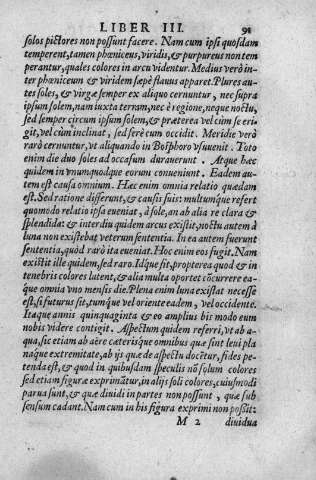 LIBER III. 91
solos pictores non possunt facere. Nam cum ipsi quosdam
temperent, tamen phœniceus, viridis, & purpureus non tem
perantur, quales colores in arcu videntur. Medius verò in-
ter phœniceum & viridem sæpè flauus apparet. Plures au-
tes soles, & virgæ semper ex aliquo cernuntur, nec supra
ipsum solem, nam iuxta terram, nec è regione, neque noctu,
sed semper circum ipsum solem, & præterea vel cùm se eri
git, vel cùm inclinat, sed ferè cum occidit. Meridie verò
rarò cernuntur, vt aliquando in Bosphoro vsuuenit. Toto
enim die duo soles ad occasum durauerunt. Atque hæc
quidem in vnumquodque eorum conueniunt. Eadem au-
tem est causa omnium. Hæc enim omnia relatio quædam
est. Sed ratione differunt, & causis suis: multumque refert
quomodo relatio ipsa eueniat, à sole, an ab alia re clara &
splendida: & interdiu quidem arcus existit, noctu autem à
luna non existebat veterum sententia. In ea autem fuerunt
sententia, quòd rarò ita eueniat. Hoc enim eos fugit, Nam
existit ille quidem, sed rarò. Idque fit, propterea quod & in
tenebris colores latent, & alia multa oportet cōcurrere ea-
que omnia vno mensis die. Plena enim luna existat necesse
est, si futurus sit, tumque vel oriente eadem, vel occidente.
Itaque annis quinquaginta & eo amplius bis modo eum
nobis videre contigit. Aspectum quidem referri, vt ab a-
qua, sic etiam ab aëre cæterisque omnibus quæ sint leui pla
naque extremitate, ab ijs quæ de aspectu docētur, fides pe-
tenda est, & quod in quibusdam speculis nō solum colores
sed etiam figuræ exprimātur, in alijs soli colores, cuiusmodi
parua sunt, & quæ diuidi in partes non possunt, quæ sub
sensum cadant. Nam cum in his figura exprimi non possit:
M 2 diuidua